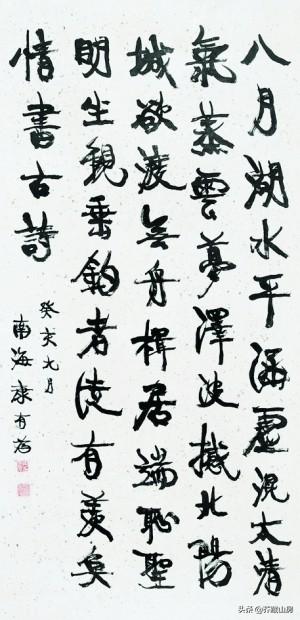 八月湖水平涵虛混太清
氣蒸雲夢澤波撼北陽
城欲渡無舟楫居端恥聖
明坐觀垂釣者徒有羨魚
情書古詩
癸亥九月
南海康有為
头条